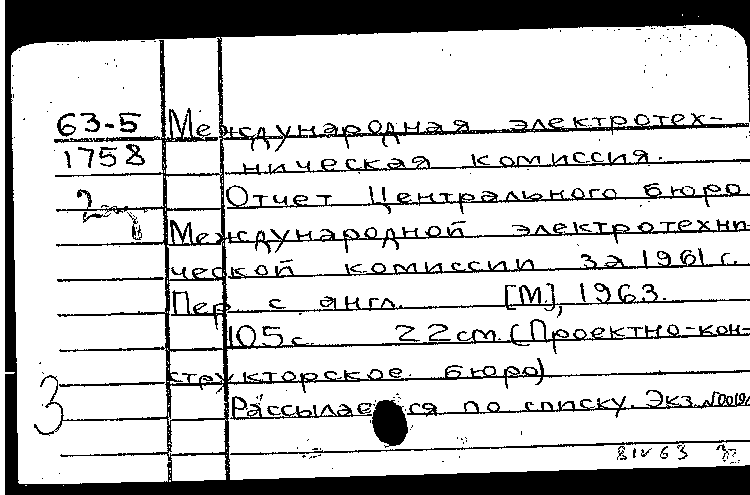 63-5 Международная электротех-
1758 ническая комиссия.
Отчет Центрального бюро
Международной электротехни-
ческой комиссии за 1961 г.
Пер с англ. [М], 1963.
105 с 22 cm. (Проектно-кон-
структорское бюро)
3 Рассылается по списку. Экз. №0019
8 IV 63